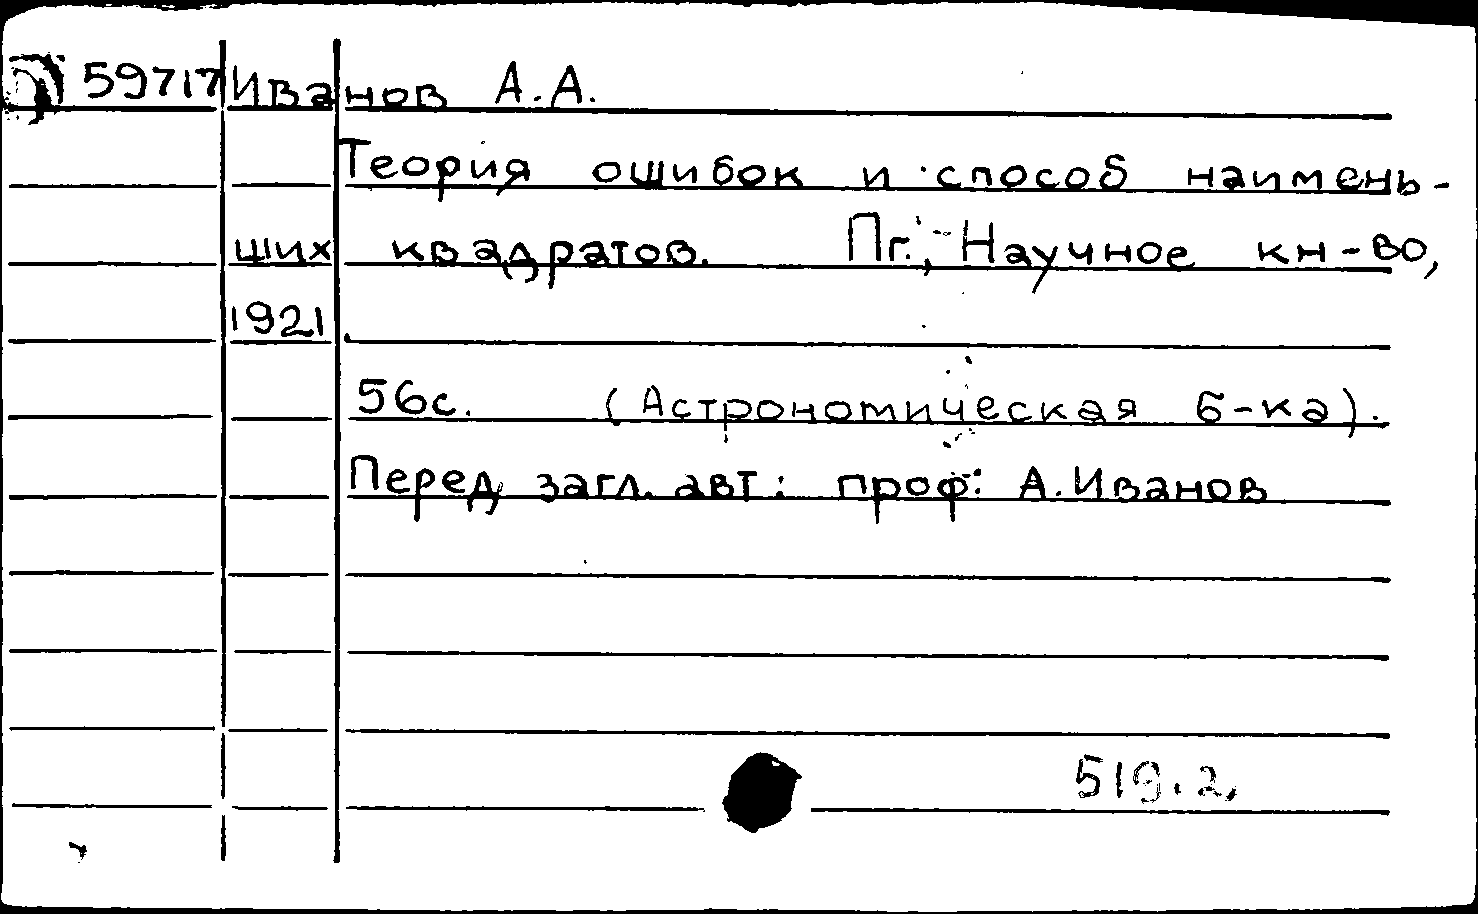 59717 Иванов А.А.
Теория ошибок и способ наимень-
ших квадратов. Пг., Научное кн-во,
1921.
56с. (Астрономическая б-ка).
Перед загл. авт: проф. А.Иванов
519.2.